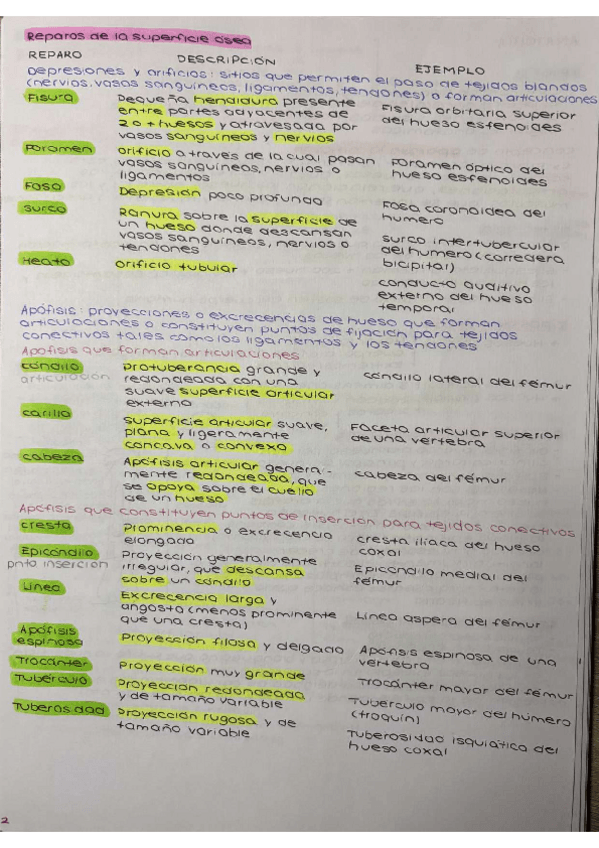 Reparos de la superficie ósea
REPARO DESCRIPCIÓN EJEMPLO
Depresiones y orificios: sitios que permiten el paso de tejidos blandos
(nervios, vasos sanguíneos, ligamentos, tendones) o forman articulaciones
Fisura Pequeña hendidura presente Fisura orbitaria superior
entre partes adyacentes de del hueso esfenoides
2 o + huesos y atravesada por
vasos sanguíneos y nervios
Foramen orificio a través de la cual pasan Foramen óptico del
vasos sanguíneos, nervios o hueso esfenoides
ligamentos
Fosa Depresión poco profunda Fosa coronoidea del
humero
surco Ranura sobre la superficie de surco intertubercular
un hueso donde descansan del humero (corredera
vasos sanguíneos, nervios o bicipital)
tendones
Meato orificio tubular conducto auditivo
externo del hueso
temporal
Apófisis: proyecciones o excrecencias de hueso que forman
articulaciones o constituyen puntos de fijación para tejidos
conectivos tales como los ligamentos y los tendones
Apofisis que forman articulaciones
cóndilo protuberancia grande y cóndilo lateral del fémur
articulación redondeada con una
suave superficie articular
externa
carilla superficie articular suave, Faceta articular superior
plana y ligeramente de una vertebra
concava o convexa
cabeza Apófisis articular general- cabeza del fémur
mente redondeada, que
se apoya sobre el cuello
de un hueso
Apófisis que constituyen puntos de inserción para tejidos conectivos
cresta Prominencia o excrecencia cresta iliaca del hueso
elongado coxal
Epicóndilo Proyección generalmente Epicóndilo medial del
pnto insercion irregular, que descansa fémur
sobre un cóndilo
Linea Excrecencia larga y Línea aspera del fémur
angosta (menos prominente
que una cresta)
Apófisis Proyección filosa y delgada Apófisis espinosa de una
espinosa vertebra
Trocánter Proyección muy grande Trocánter mayor del fémur
Tubérculo proyección redondeada Tubérculo mayor del húmero
y de tamaño variable (troquín)
Tuberosidad proyección rugosa y de Tuberosidad isquiática del
tamaño variable hueso coxal
2